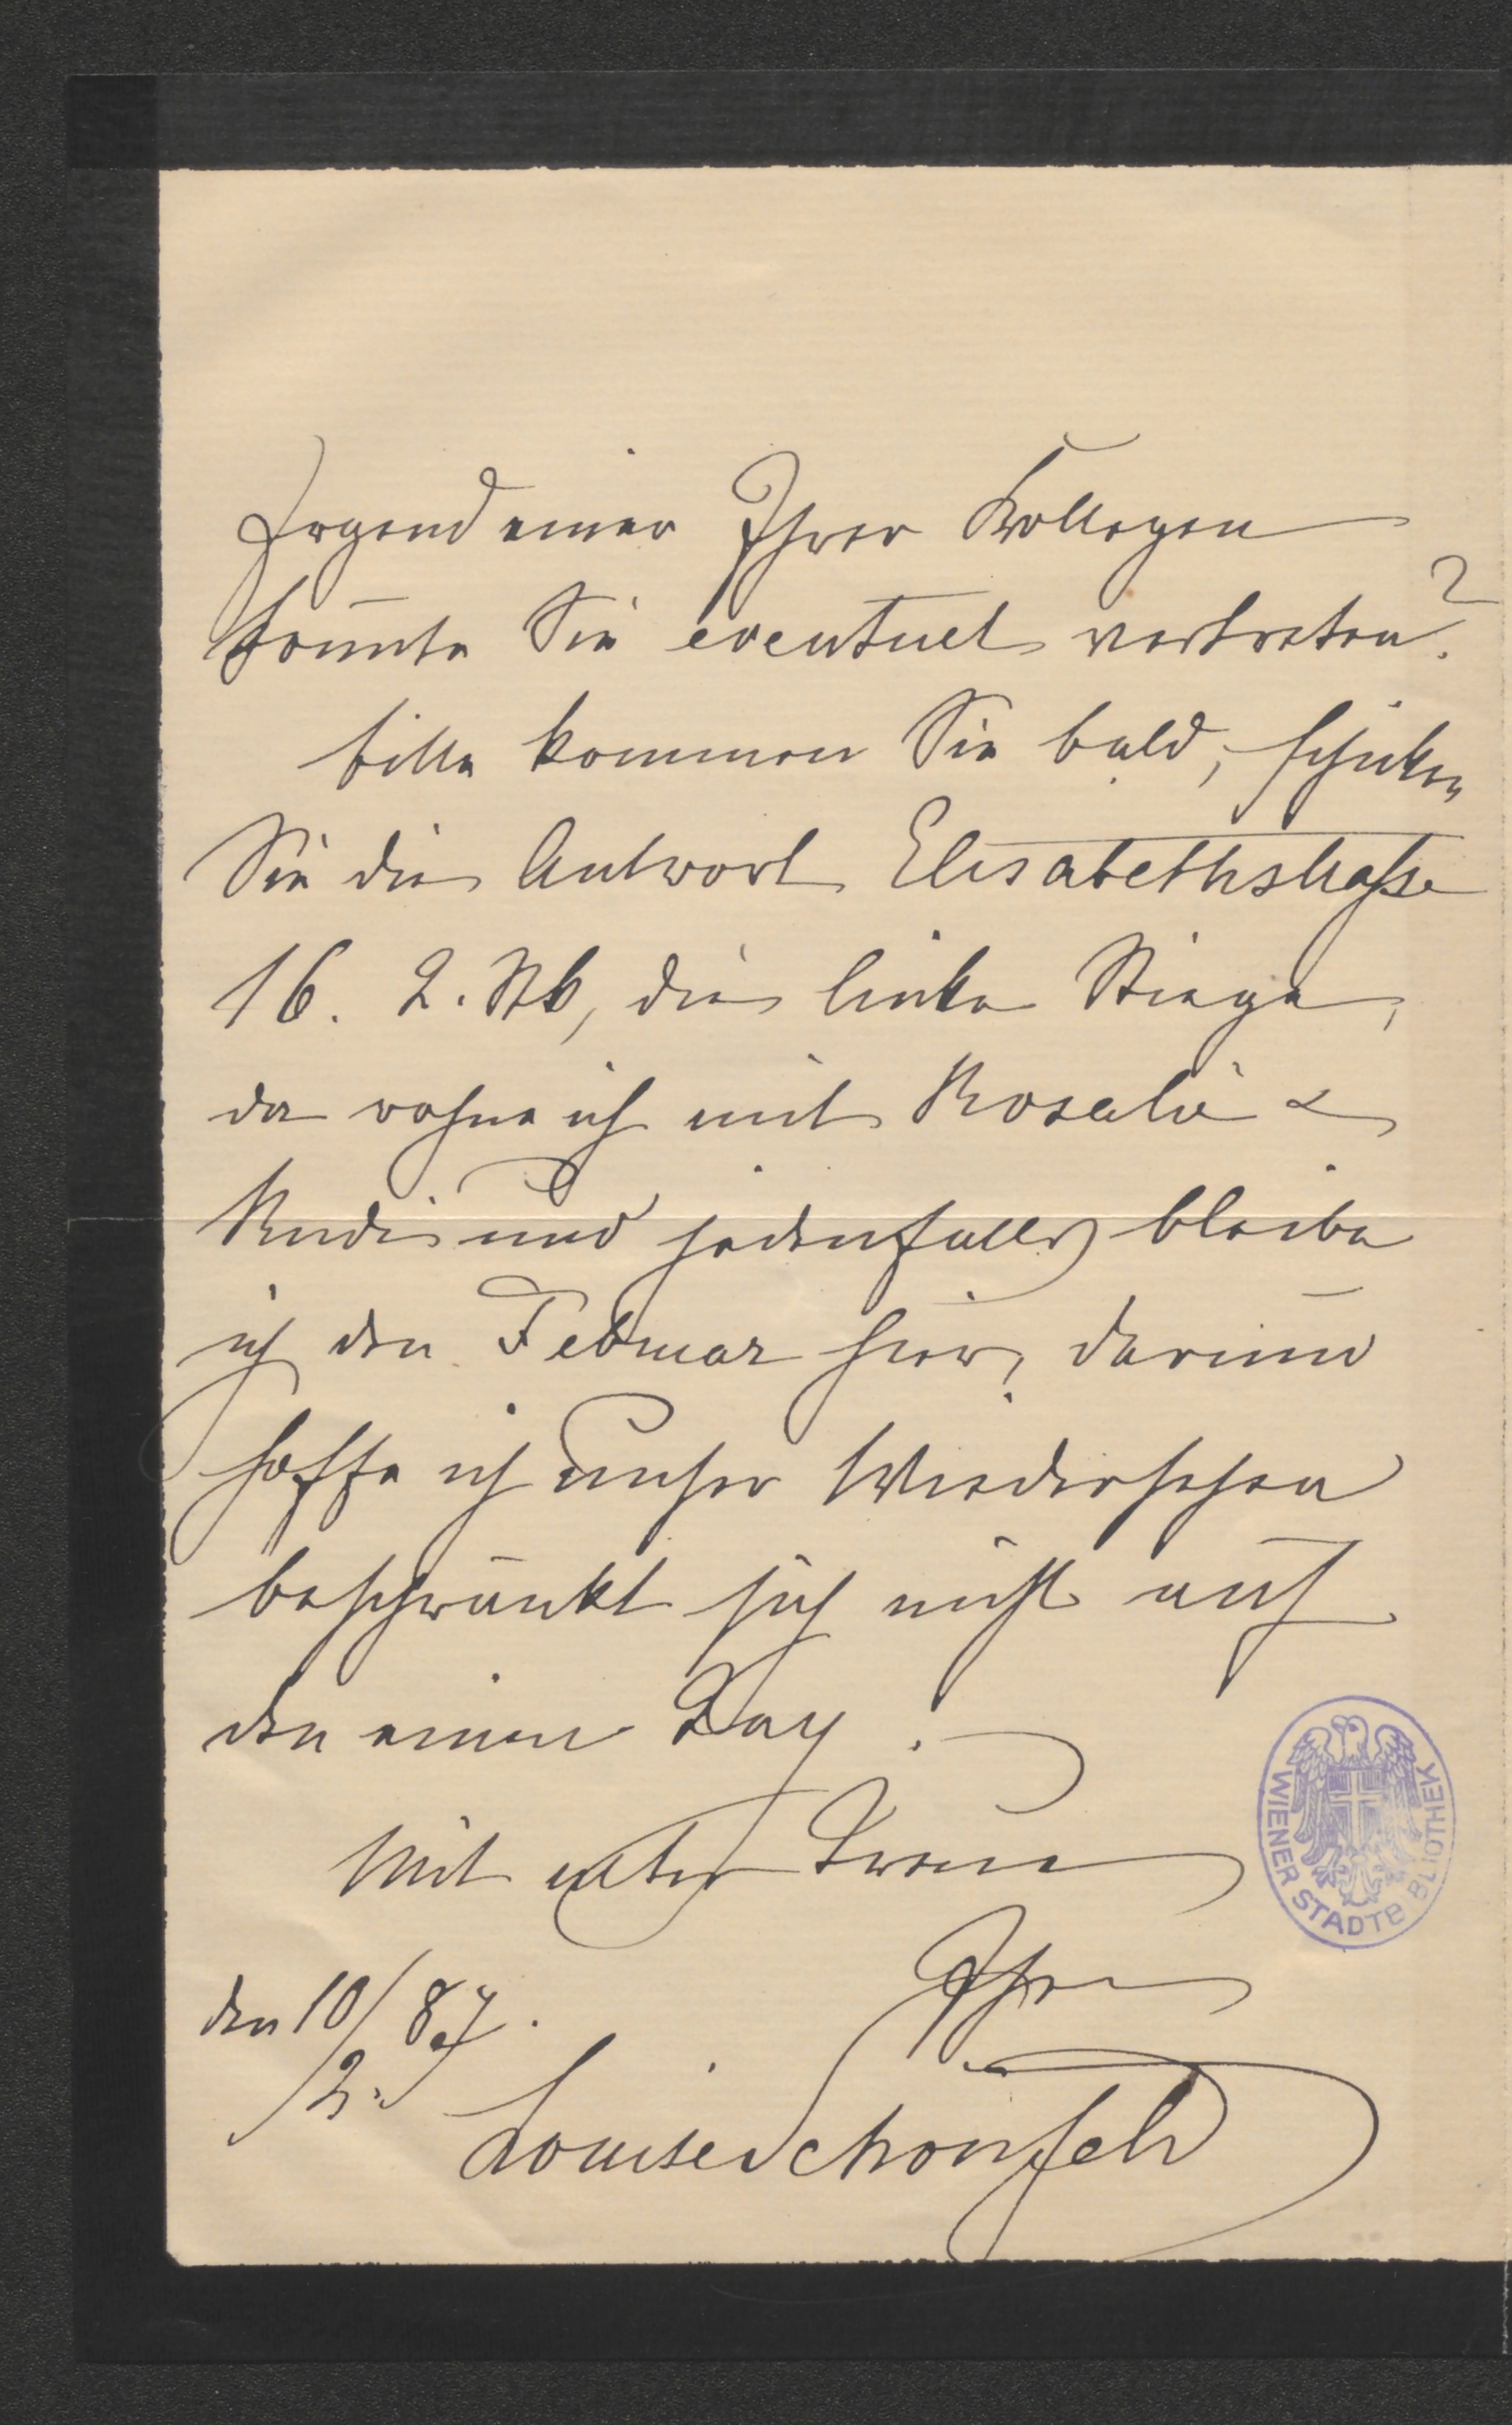 Irgend einer Ihrer Kollegen
könnte Sie eventuel vertreten?
bitte kommen Sie bald, schicken
Sie die Antwort Elisabethstrasse
16. 2. Stk, die linke Stiege,
da wohne ich mit Rosalie &
Rudi und jedenfalls bleibe
ich den Februar hier, darum
hoffe ich unser Wiedersehen
beschränkt sich nicht auf
den einen Tag.
Mit alter Treue
Ihre
den 10/2. 87.
Louise Schönfeld
WIENER STADTBIBLIOTHEK